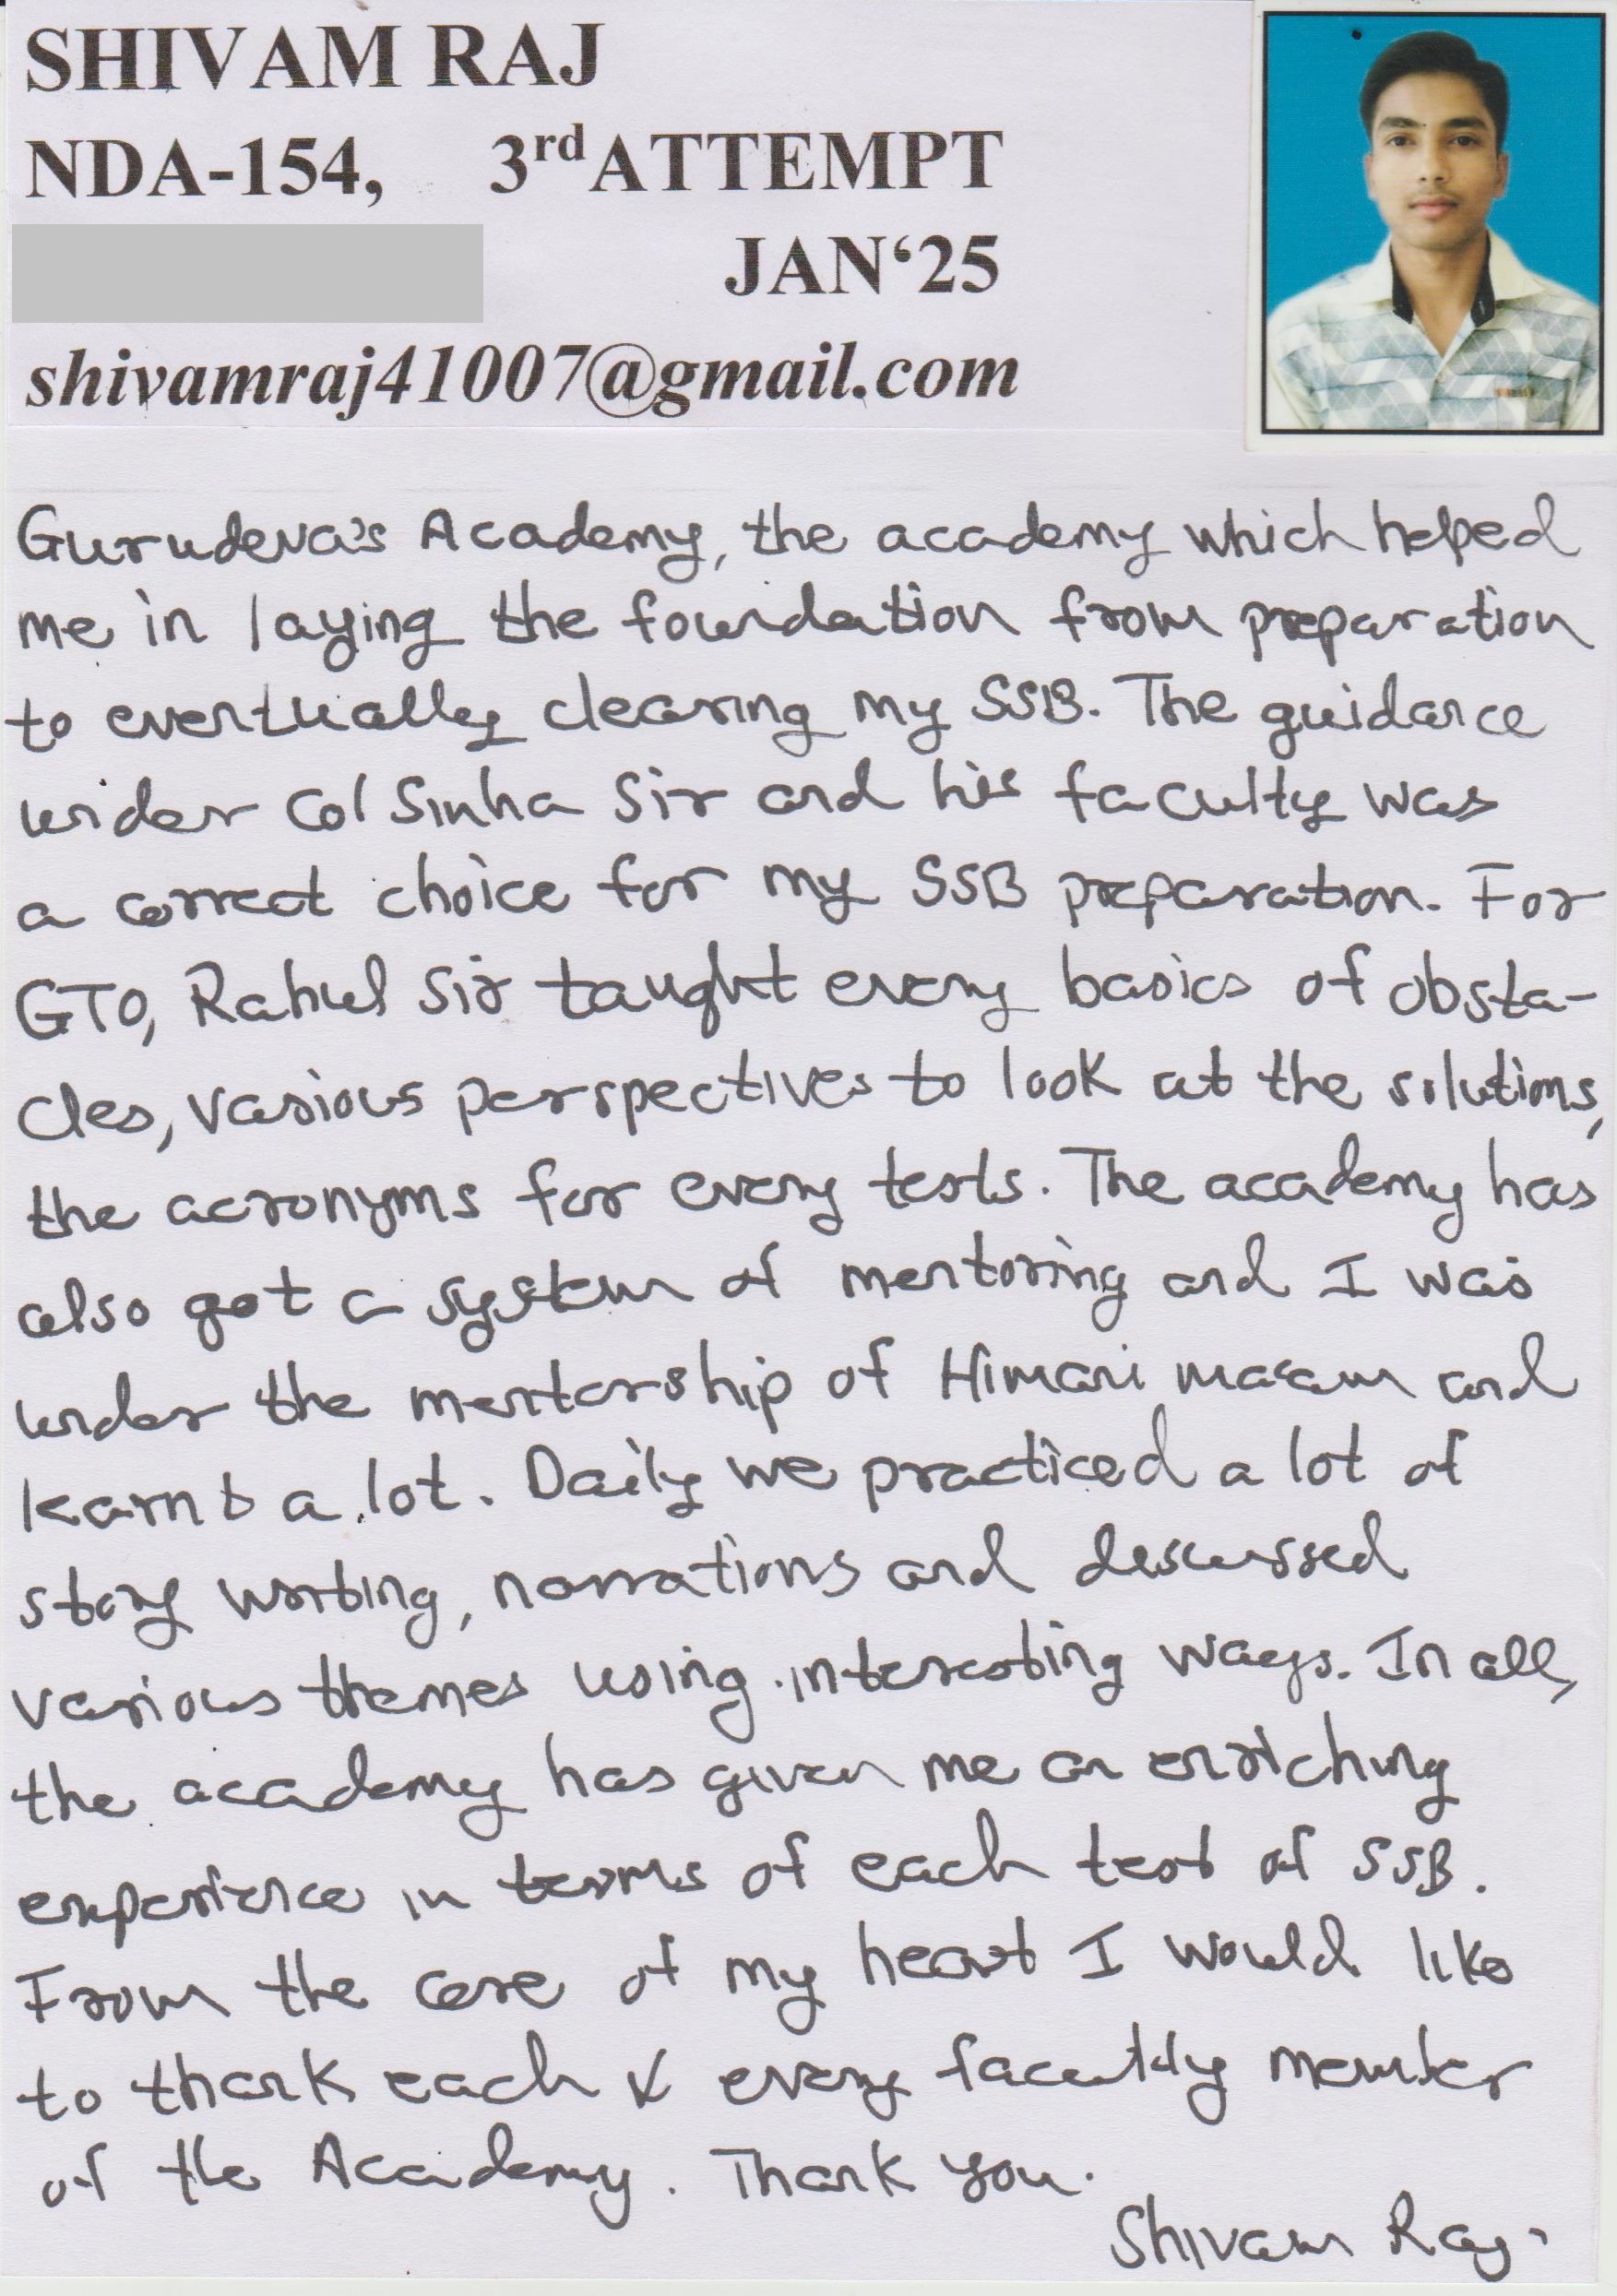 SHIVAM RAJ
NDA-154, 3rd ATTEMPT
JAN‘25
shivamraj41007@gmail.com
Gurudeva's Academy, the academy which helped
me in laying the foundation from preparation
to eventually clearing my SSB. The guidance
under Col Sinha Sir and his faculty was
a correct choice for my SSB preparation. For
GTO, Rahul Sir taught every basics of obsta-
cles, various perspectives to look at the solutions,
the acronyms for every tests. The academy has
also got a system of mentoring and I was
under the mentorship of Himani ma'am and
learnt a lot. Daily we practiced a lot of
story writing, narrations and discussed
various themes using interesting ways. In all,
the academy has given me an enriching
experience in terms of each test of SSB.
From the core of my heart I would like
to thank each & every facultly member
of the Academy. Thank you.
Shivam Raj